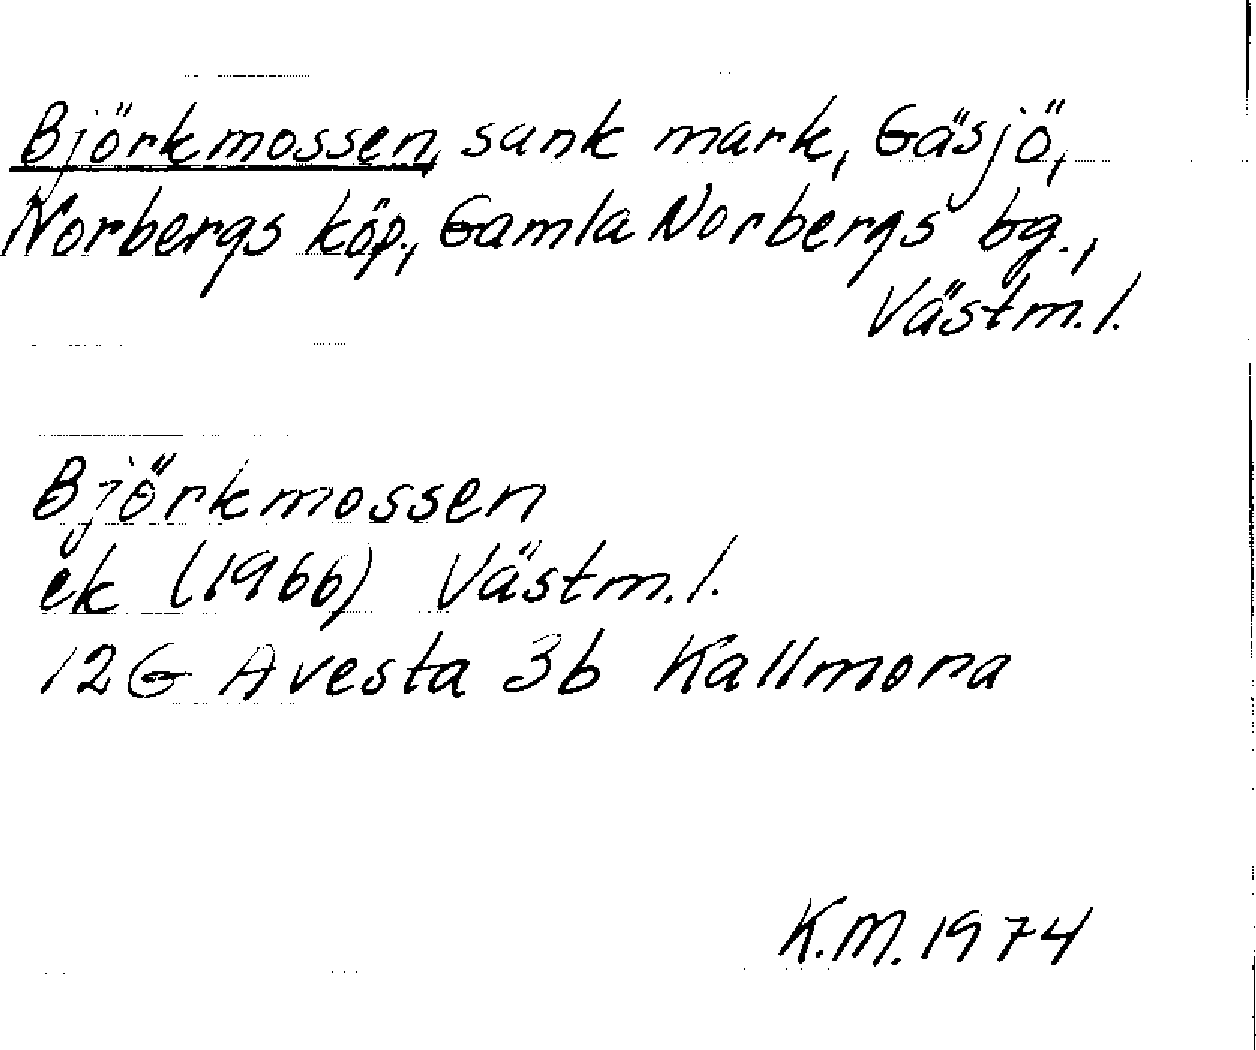 Björkmossen, sank mark, Gäsjö,
Norbergs köp., Gamla Norbergs bg.,
Västm. l.
Björkmossen
ek (1966) Västm. l.
12G Avesta 3b Kallmora
K.M. 1974